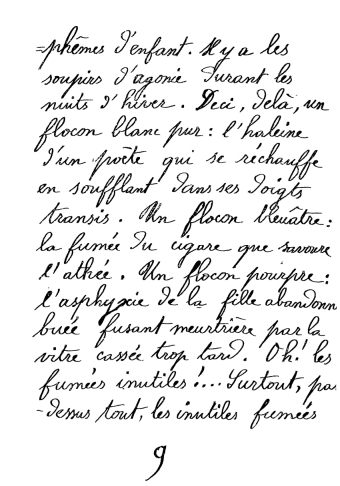 =phêmes d'enfant. Il y a les
soupirs d'agonie durant les
nuits d'hiver. Deci, delà, un
flocon blanc pur : l'haleine
d'un poète qui se réchauffe
en soufflant dans ses doigts
transis. Un flocon bleuâtre :
la fumée du cigare que savoure
l'athée. Un flocon pourpre :
l'asphyxie de la fille abandonn
buée fusant meurtrière par la
vitre cassée trop tard. Oh! les
fumées inutiles!... Surtout, pa
-dessus tout, les inutiles fumées
9